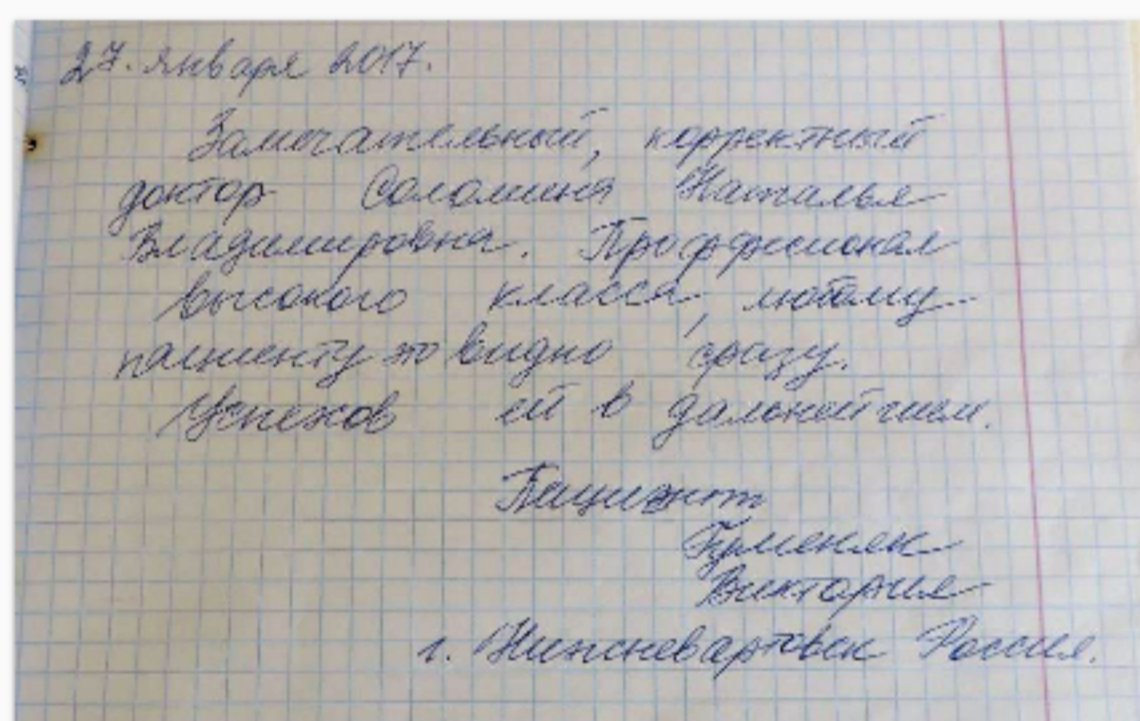 27. января 2017.
Замечательный, корректный
доктор Соломина Наталья
Владимировна. Профессионал
высокого класса, любому
пациенту это видно сразу.
Успехов ей в дальнейшем.
Пациент
Гуменяк
Виктория
г. Нижневартовск Россия.